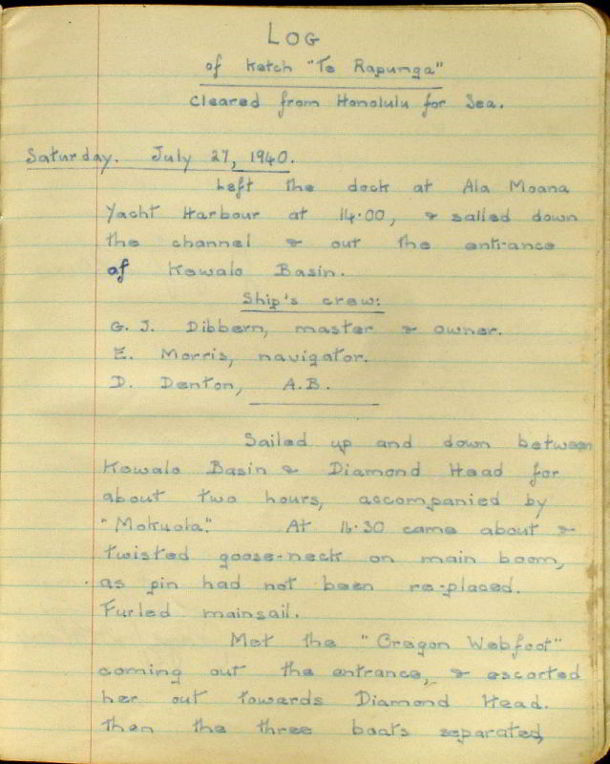 LOG
of Ketch "Te Rapunga"
Cleared from Honolulu for Sea.
Saturday. July 27, 1940.
Left the dock at Ala Moana
Yacht Harbour at 14.00, & sailed down
the channel & out the entrance
of Kewalo Basin.
Ship's crew:
G. J. Dibbern, master & owner.
E. Morris, navigator.
D. Denton, A.B.
Sailed up and down between
Kewalo Basin & Diamond Head for
about two hours, accompanied by
"Mokuola." At 16.30 came about &
twisted goose-neck on main boom,
as pin had not been re-placed.
Furled mainsail.
Met the "Oregon Webfoot"
coming out the entrance, & escorted
her out towards Diamond Head.
Then the three boats separated,